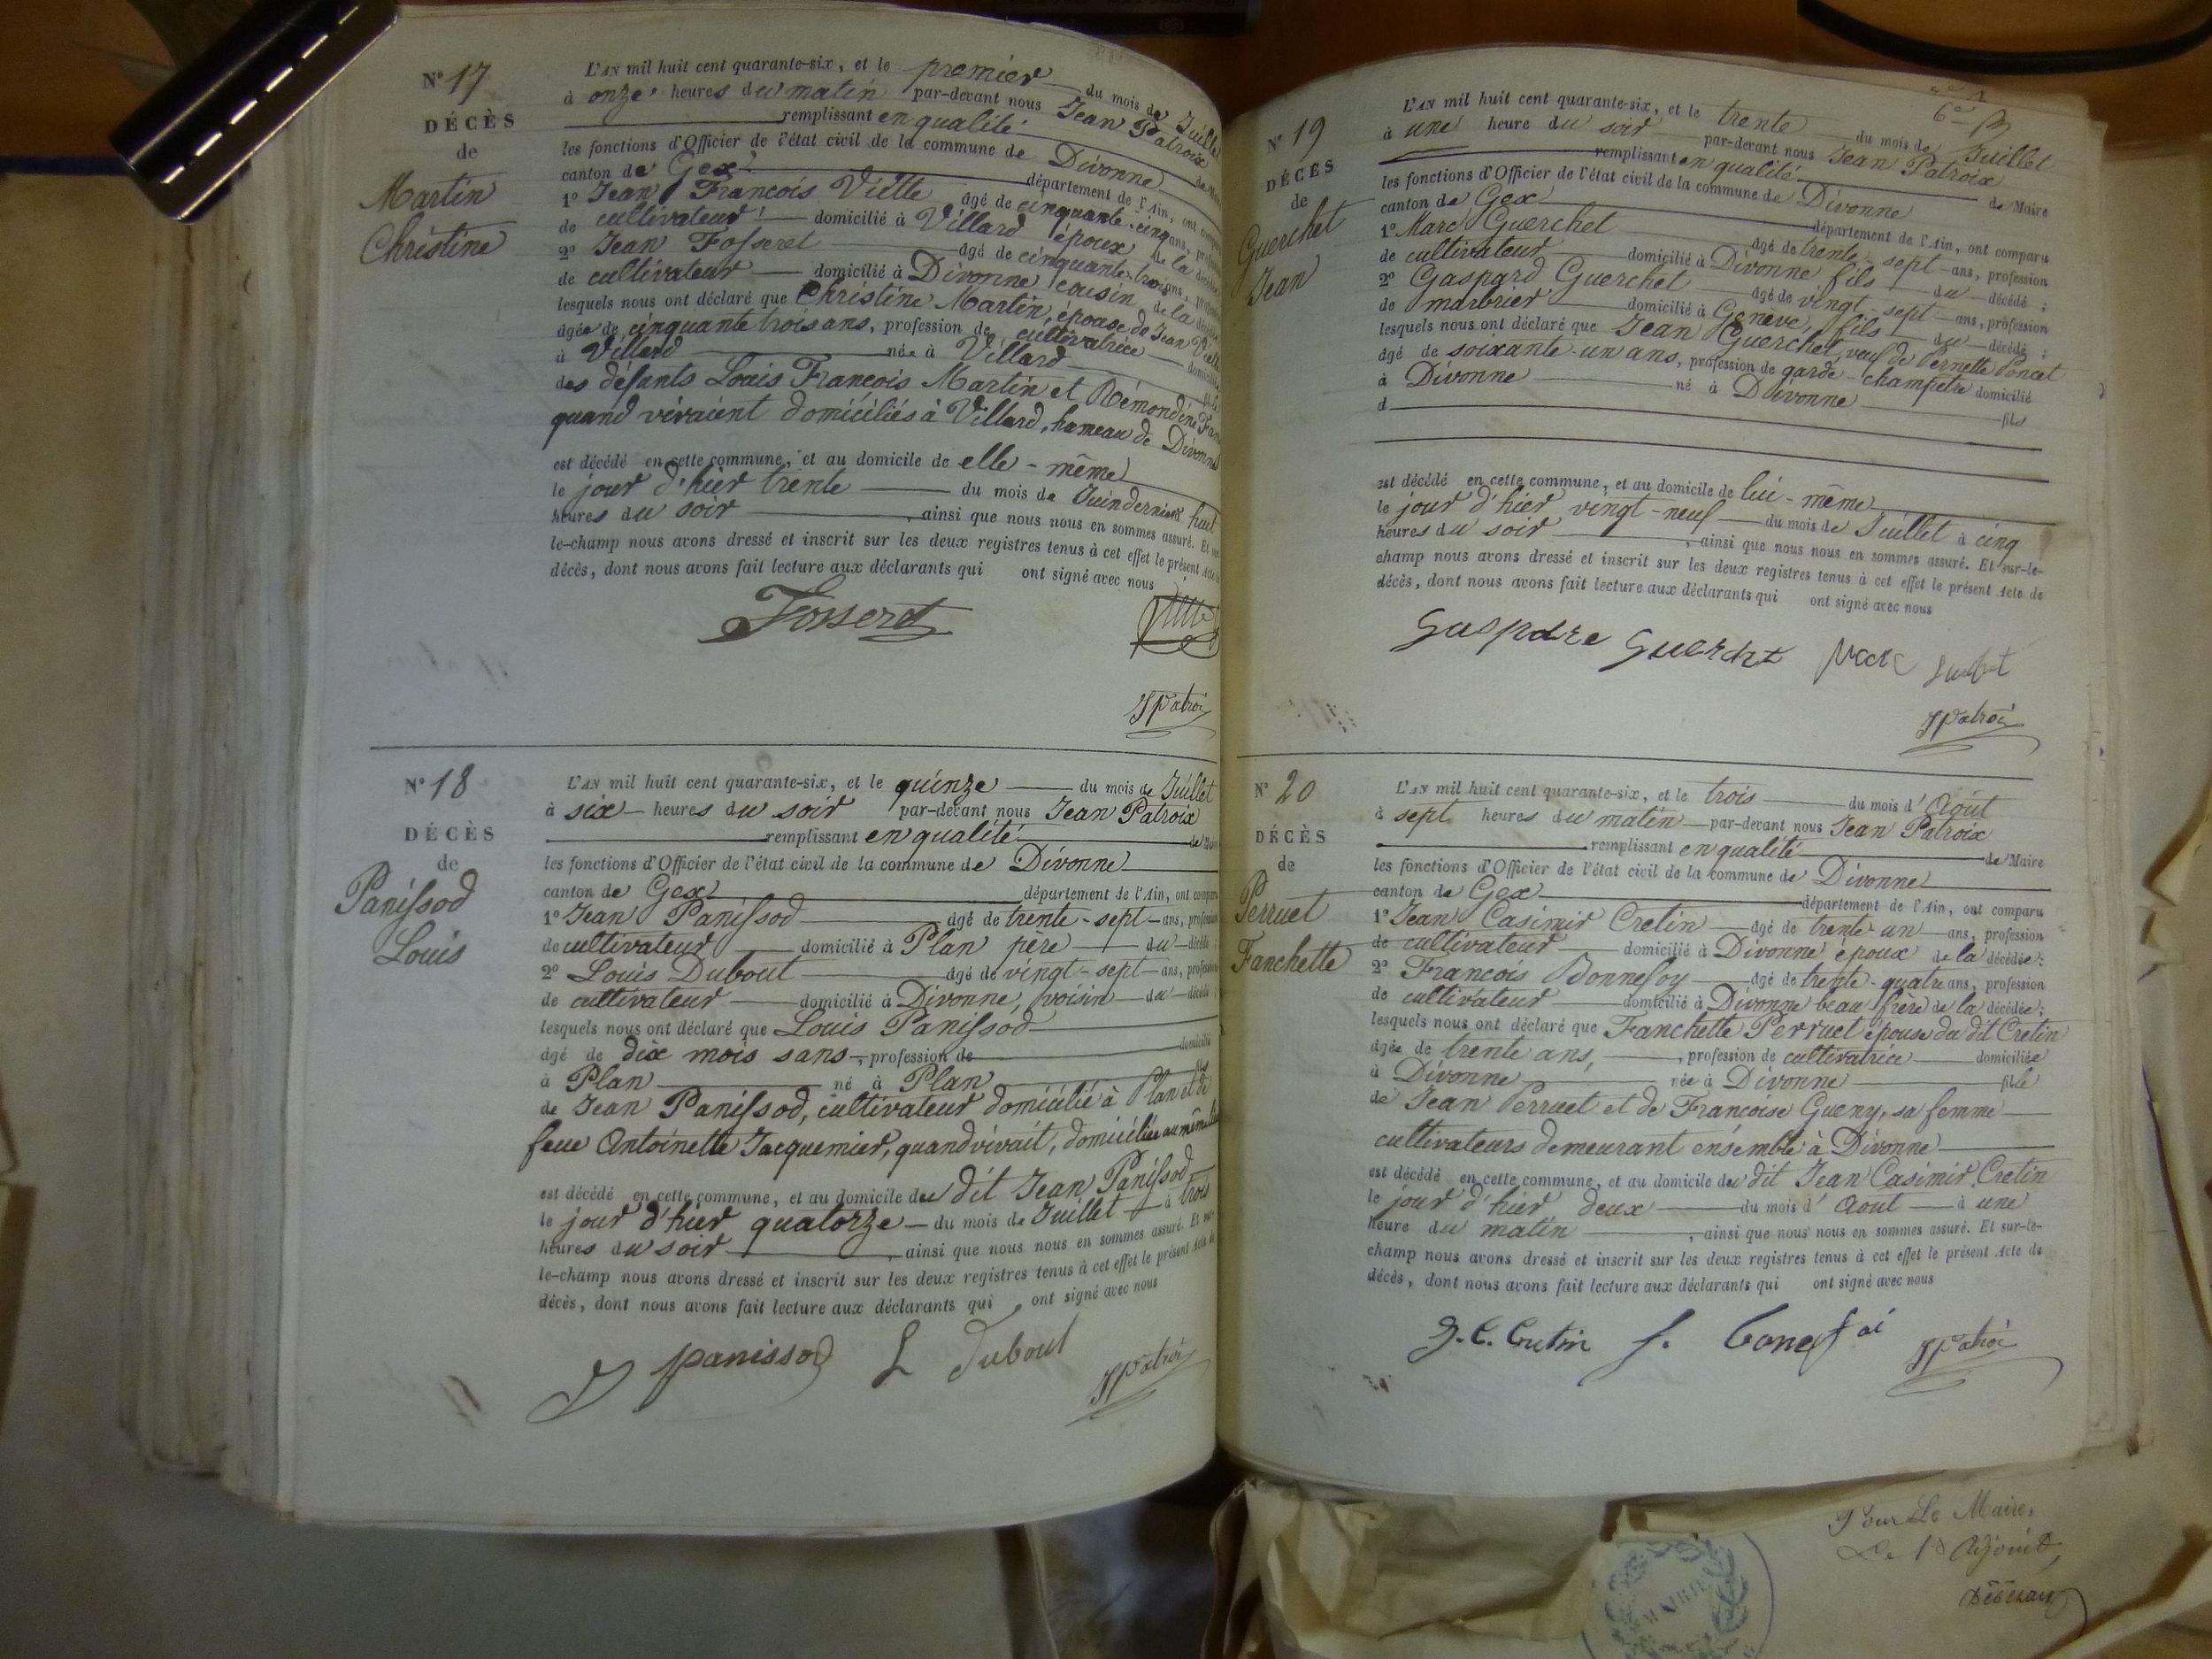 N° 17
DÉCÈS
de
Martin
Christine
L'AN mil huit cent quarante-six, et le premier du mois de Juillet
à onze heures du matin par-devant nous Jean Patroix
remplissant en qualité de Maire
les fonctions d'Officier de l'état civil de la commune de Divonne
canton de Gex département de l'Ain, ont comparu
1° Jean François Viette âgé de cinquante-cinq ans, profession
de cultivateur domicilié à Villard époux de la décédée
2° Jean Fosseret âgé de cinquante-trois ans, profession
de cultivateur domicilié à Divonne cousin de la décédée
lesquels nous ont déclaré que Christine Martin, épouse de Jean
âgée de cinquante trois ans, profession de cultivatrice domiciliée
à Villard née à Villard fille
des défunts Louis François Martin et Rémondine
quand vivaient domiciliés à Villard, hameau de Divonne
est décédé en cette commune, et au domicile de elle-même
le jour d'hier trente du mois de Juin dernier à huit
heures du soir, ainsi que nous nous en sommes assuré. Et sur-
le-champ nous avons dressé et inscrit sur les deux registres tenus à cet effet le présent Acte de
décès, dont nous avons fait lecture aux déclarants qui ont signé avec nous
Fosseret
JPatroix
N° 18
DÉCÈS
de
Panissod
Louis
L'AN mil huit cent quarante-six, et le quinze du mois de Juillet
à six heures du soir par-devant nous Jean Patroix
remplissant en qualité de Maire
les fonctions d'Officier de l'état civil de la commune de Divonne
canton de Gex département de l'Ain, ont comparu
1° Jean Panissod âgé de trente-sept ans, profession
de cultivateur domicilié à Plan père du décédé
2° Louis Dubout âgé de vingt-sept ans, profession
de cultivateur domicilié à Divonne, voisin du décédé
lesquels nous ont déclaré que Louis Panissod
âgé de dix mois sans, profession de domicilié
à Plan né à Plan fils
de Jean Panissod, cultivateur domicilié à Plan et de
feue Antoinette Jacquemier, quand vivait, domiciliée au même lieu
est décédé en cette commune, et au domicile du dit Jean Panissod
le jour d'hier quatorze du mois de Juillet à trois
heures du soir, ainsi que nous nous en sommes assuré. Et sur-
le-champ nous avons dressé et inscrit sur les deux registres tenus à cet effet le présent Acte de
décès, dont nous avons fait lecture aux déclarants qui ont signé avec nous
J panissod L Dubout
JPatroix
N° 19
DÉCÈS
de
Guerchet
Jean
L'AN mil huit cent quarante-six, et le trente du mois de Juillet
à une heure du soir par-devant nous Jean Patroix
remplissant en qualité de Maire
les fonctions d'Officier de l'état civil de la commune de Divonne
canton de Gex département de l'Ain, ont comparu
1° Marc Guerchet âgé de trente-sept ans, profession
de cultivateur domicilié à Divonne fils du décédé;
2° Gaspard Guerchet âgé de vingt-sept ans, profession
de marbrier domicilié à Genève, fils du décédé;
lesquels nous ont déclaré que Jean Guerchet, veuf de Pernette Poncet
âgé de soixante-un ans, profession de garde-champêtre domicilié
à Divonne né à Divonne fils
d
est décédé en cette commune, et au domicile de lui-même
le jour d'hier vingt-neuf du mois de Juillet à cinq
heures du soir, ainsi que nous nous en sommes assuré. Et sur-le-
champ nous avons dressé et inscrit sur les deux registres tenus à cet effet le présent Acte de
décès, dont nous avons fait lecture aux déclarants qui ont signé avec nous
Gaspare Guerchet
JPatroix
N° 20
DÉCÈS
de
Perruet
Fanchette
L'AN mil huit cent quarante-six, et le trois du mois d'Août
à sept heures du matin par-devant nous Jean Patroix
remplissant en qualité de Maire
les fonctions d'Officier de l'état civil de la commune de Divonne
canton de Gex département de l'Ain, ont comparu
1° Jean Casimir Cretin âgé de trente-un ans, profession
de cultivateur domicilié à Divonne, époux de la décédée;
2° François Bonnefoy âgé de trente-quatre ans, profession
de cultivateur domicilié à Divonne beau frère de la décédée;
lesquels nous ont déclaré que Fanchette Perruet épouse du dit Cretin
âgée de trente ans, profession de cultivatrice domiciliée
à Divonne née à Divonne fille
de Jean Perruet et de Françoise Gueny, sa femme
cultivateurs demeurant ensemble à Divonne
est décédé en cette commune, et au domicile du dit Jean Casimir Cretin
le jour d'hier deux du mois d'Août à une
heure du matin, ainsi que nous nous en sommes assuré. Et sur-le-
champ nous avons dressé et inscrit sur les deux registres tenus à cet effet le présent Acte de
décès, dont nous avons fait lecture aux déclarants qui ont signé avec nous
J. C. Cretin f. bonefoi
JPatroix
Pour Le Maire,
Le 1er Adjoint,
MAIRIE